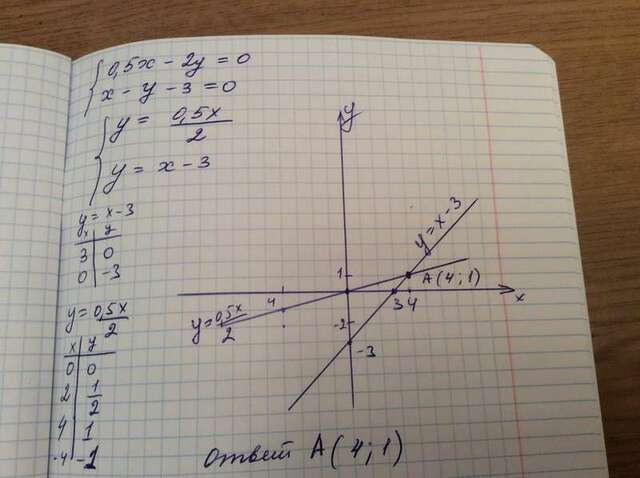 0,5x - 2y = 0
x - y - 3 = 0
y = 0,5x / 2
y = x - 3
y = x - 3
x y
3 0
0 -3
y = 0,5x / 2
x y
0 0
2 1/2
4 1
-4 -1
y
y = x - 3
1
A(4;1)
4
3 4
x
y = 0,5x / 2
-2
-3
ответ A(4;1)